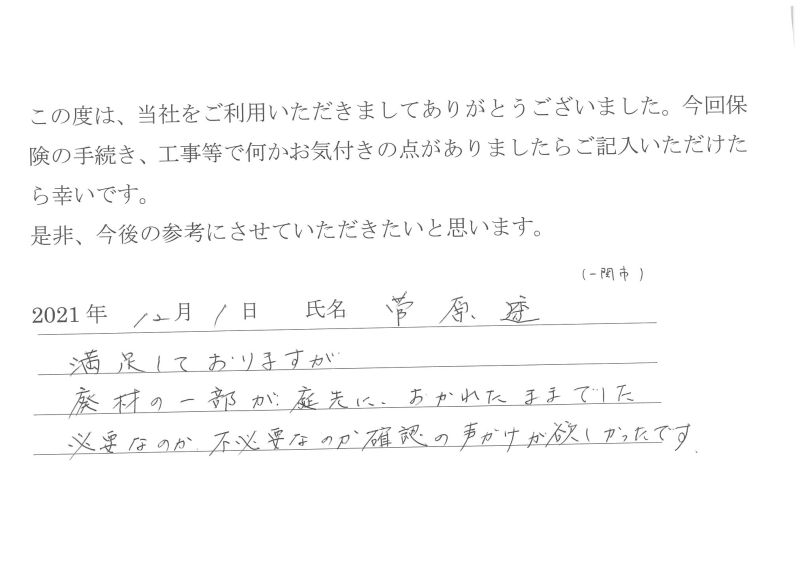 この度は、当社をご利用いただきましてありがとうございました。今回保
険の手続き、工事等で何かお気付きの点がありましたらご記入いただけた
ら幸いです。
是非、今後の参考にさせていただきたいと思います。
(一関市)
2021年 12月 1日 氏名 菅原 透
満足しておりますが
廃材の一部が庭先に、おかれたままでした
必要なのか、不必要なのか確認の声かけが欲しかったです.